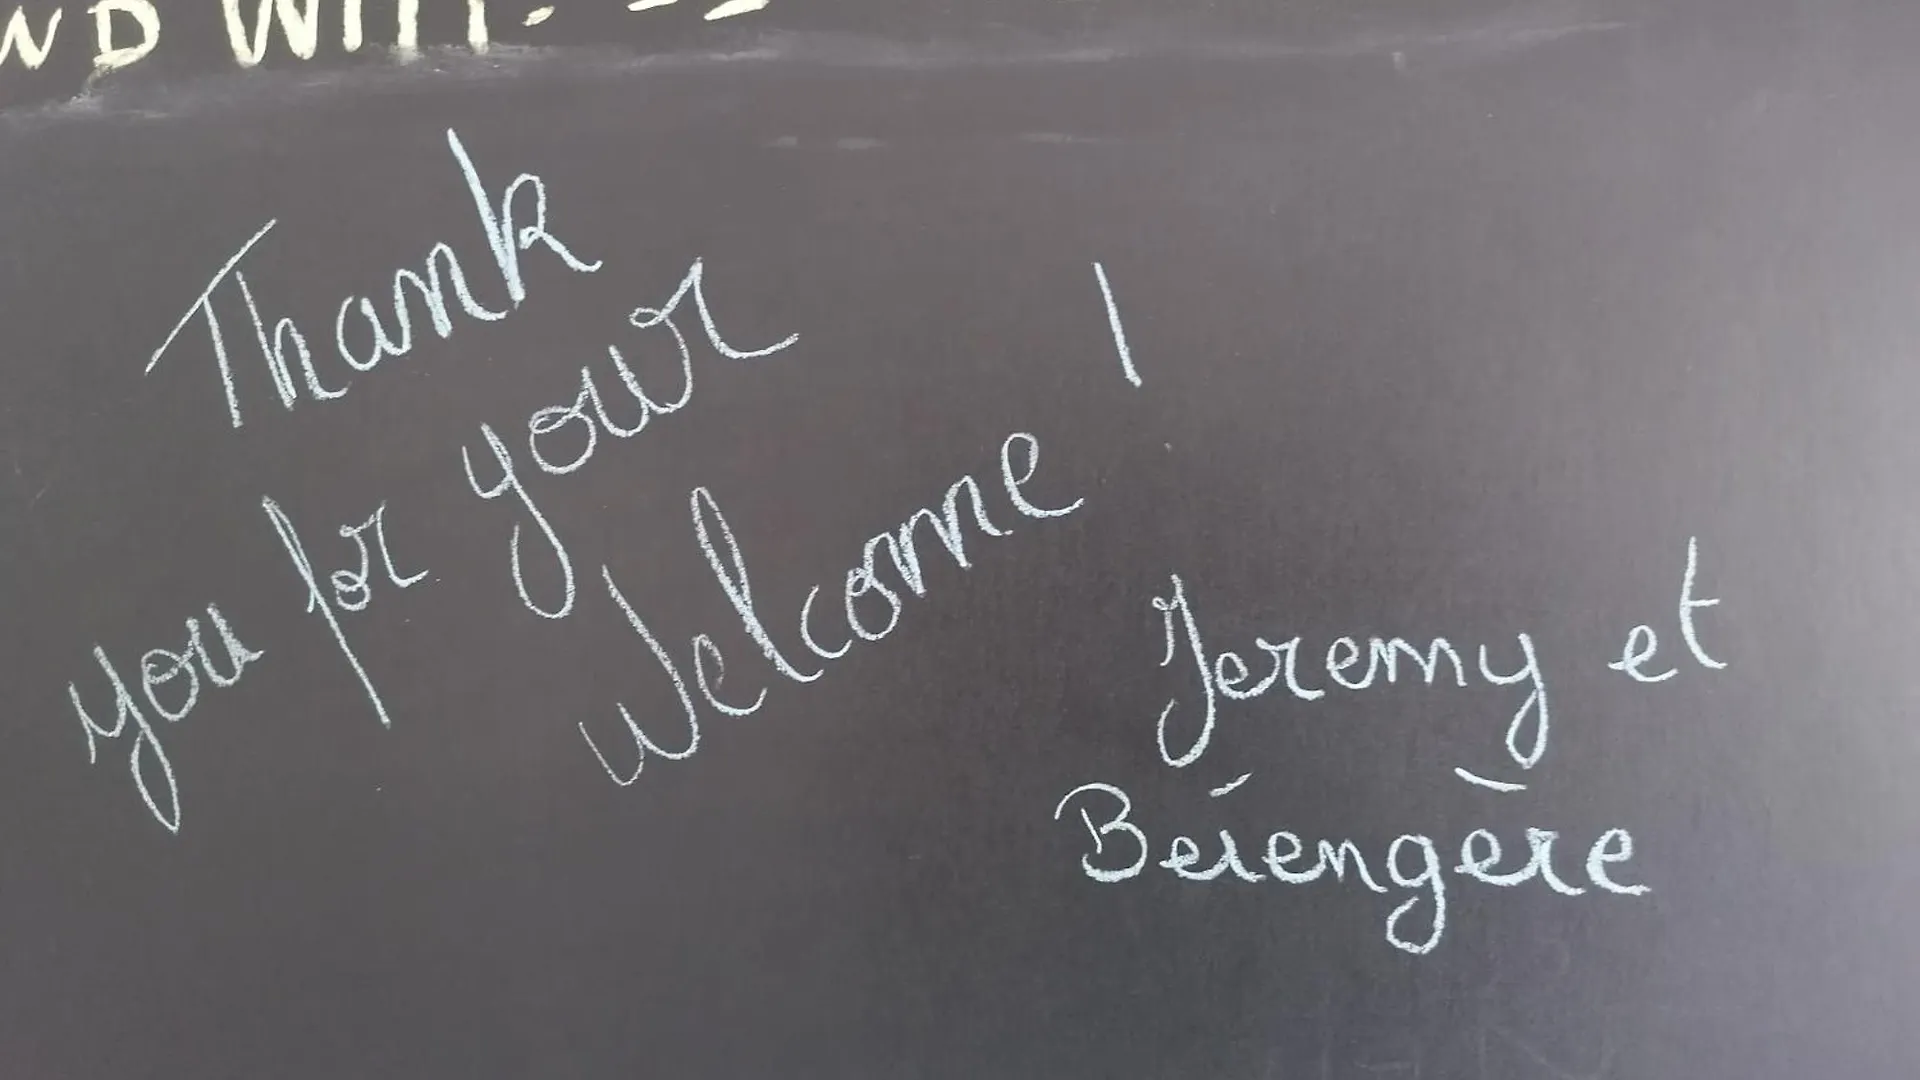 Thank
you for your
Welcome !
Jeremy et
Bérengère